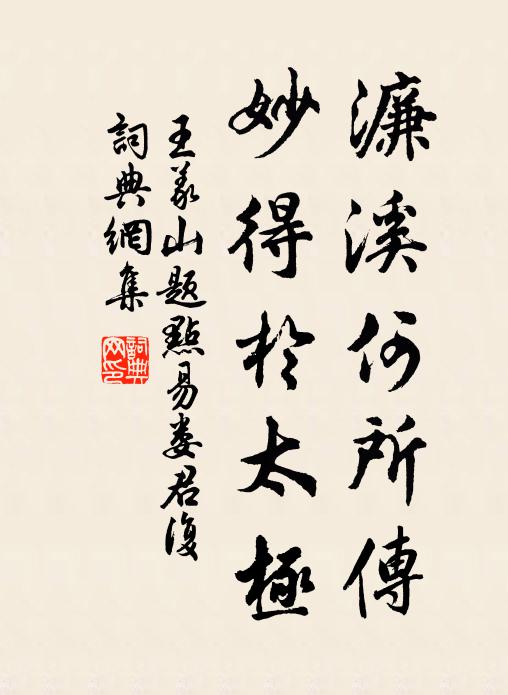 濂溪何所傳
妙得於太極
王義山題點易婁君復
詞典網集
詞典
网印